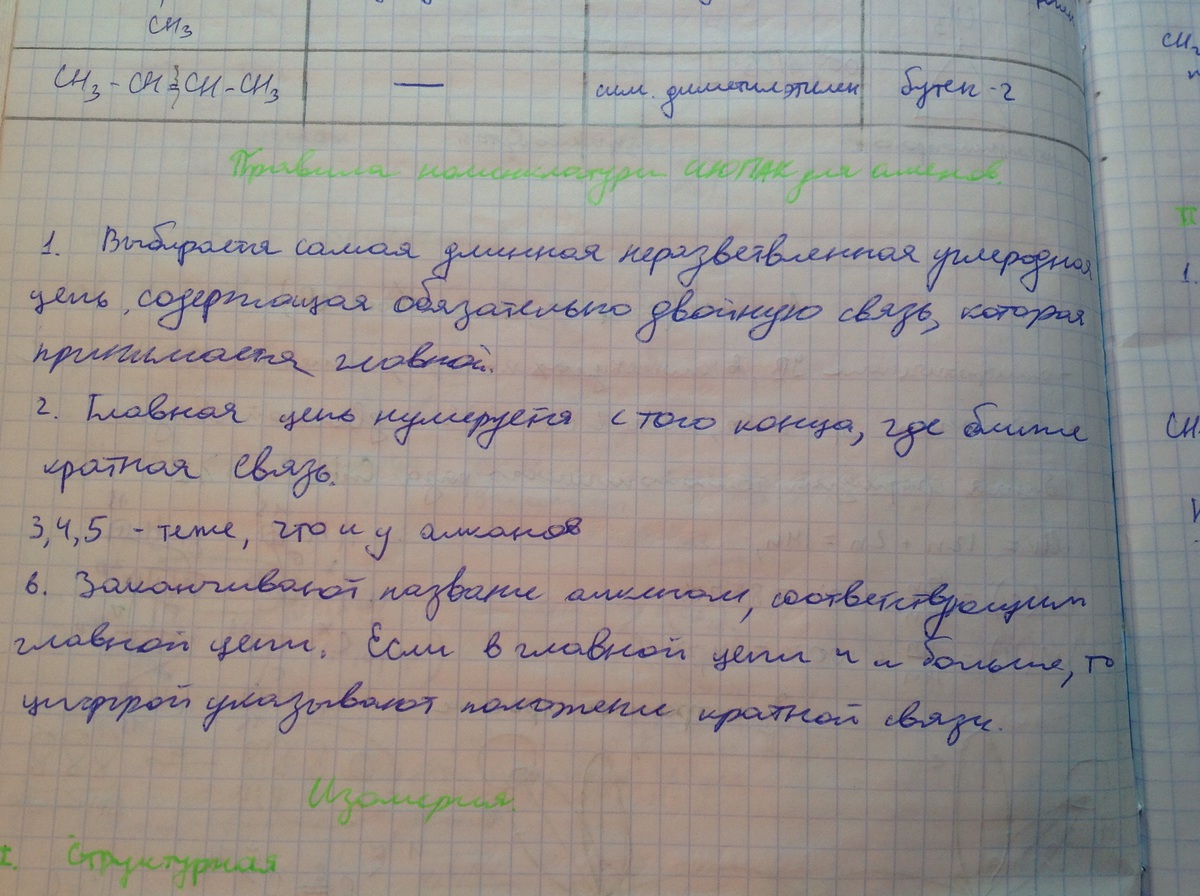 CH3
CH3 - CH = CH - CH3 — сим. диметилэтилен бутен-2
Правила номенклатуры ИЮПАК для алкенов.
1. Выбирается самая длинная неразветвленная углеродная
цепь, содержащая обязательно двойную связь, которая
принимается главной.
2. Главная цепь нумеруется с того конца, где ближе
кратная связь.
3,4,5 - теже, что и у алканов
6. Заканчивают название алкеном, соответствующим
главной цепи. Если в главной цепи 4 и больше, то
цифрой указывают положение кратной связи.
Изомерия.
I. Структурная
CH2
1.
CH